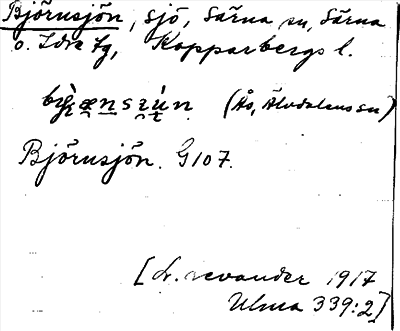 Björnsjön, sjö, Särna sn, Särna
o. Idre tg, Kopparbergs l.
(Ås, Älvdalens sn)
Björnsjön. G107.
[Lr. Levander 1917
Ulma 339:2]